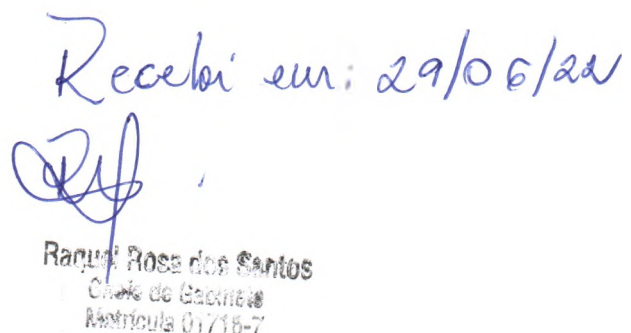 Recebi em: 29/06/22
Raquel Rosa dos Santos
Chefe de Gabinete
Matrícula 01718-7